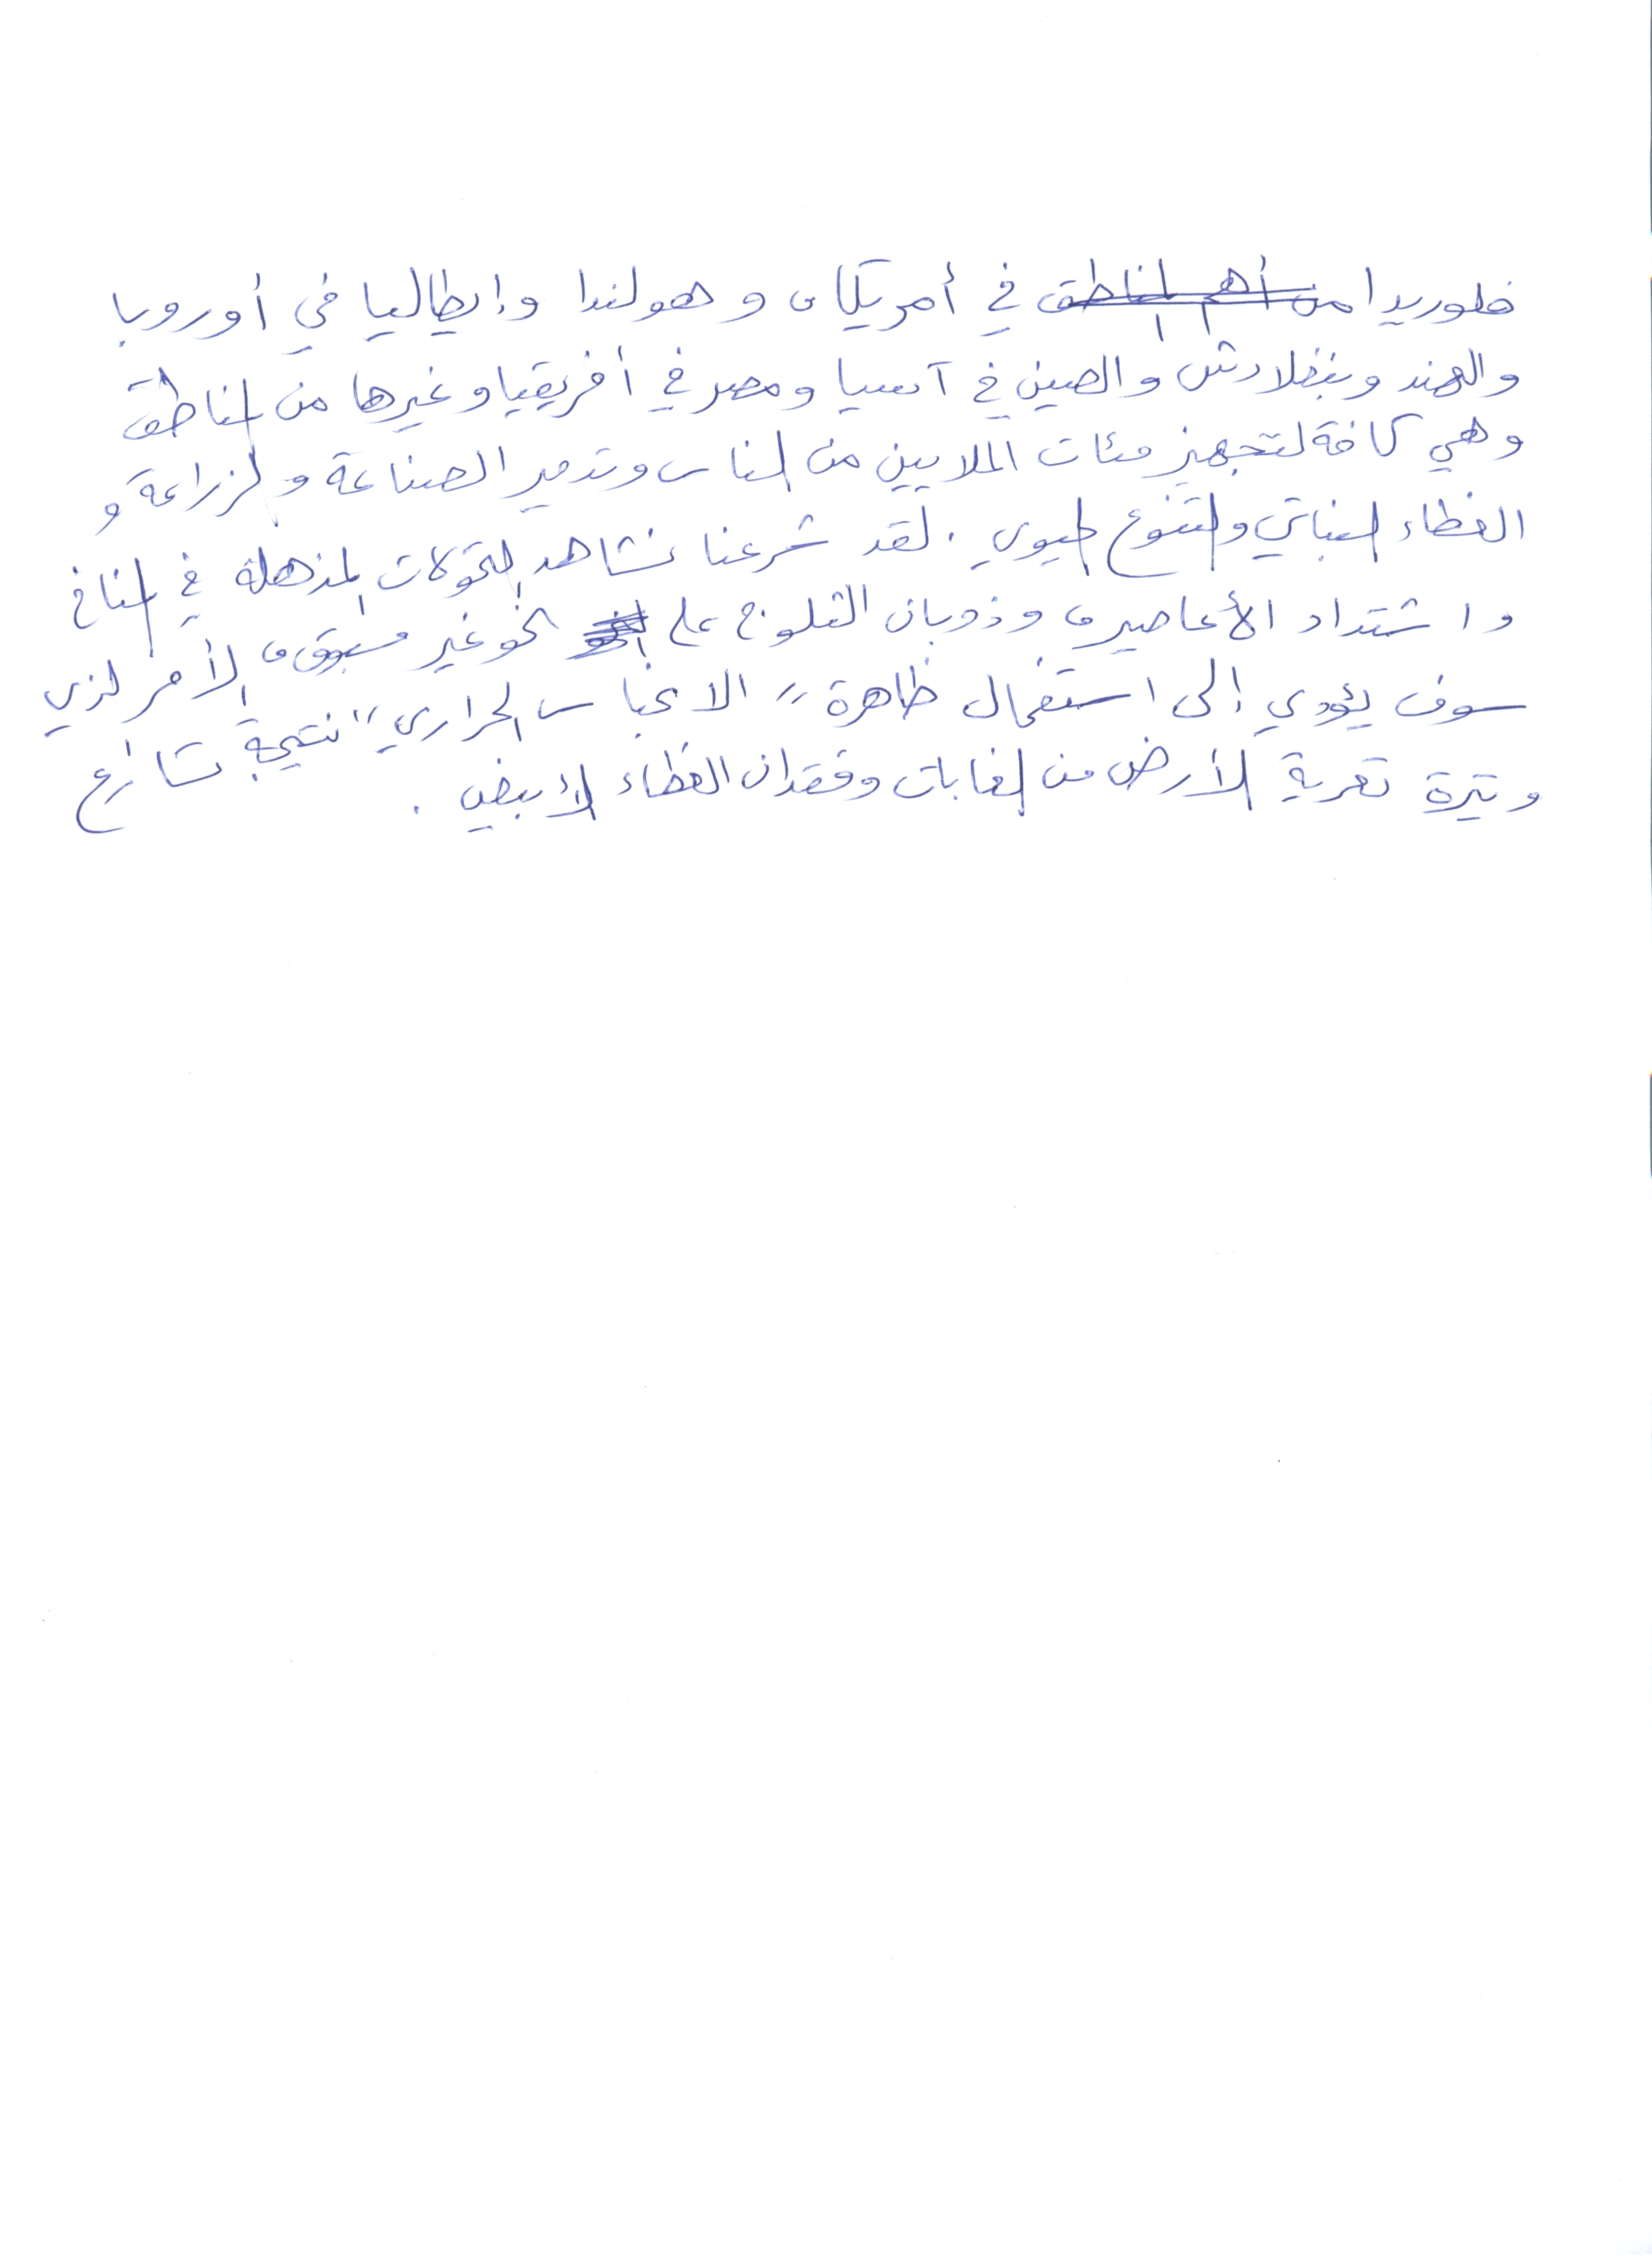 فلوريدا من أهم المناطق في أمريكا، وهولندا وإيطاليا في أوروبا
والهند وبنغلادش والصين في آسيا ومصر في أفريقيا وغيرها من المناطق
وهي كافة لتجهيز مئات الملايين من الناس وتدمير الصناعة والزراعة و
الغطاء النباتي والتنوع الحيوي. لقد شرعنا نشاهد التحولات المذهلة في المناخ
واشتداد الأعاصير، وذوبان الثلوج على نحو غير مسبوق، الأمر الذي
سوف يؤدي إلى استفحال ظاهرة "الاحتباس الحراري" نتيجة تسارع
وتيرة تعرية الأرض من الغابات وفقدان الغطاء الأبيض.